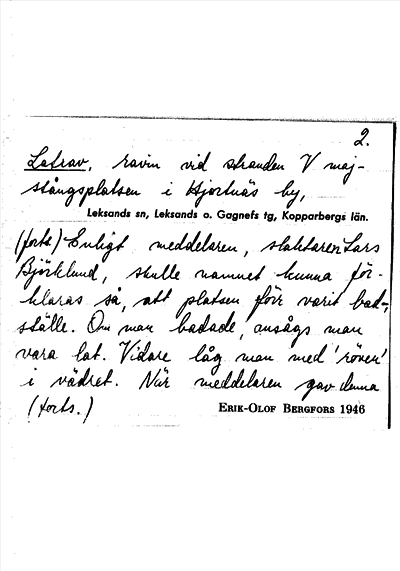 2.
Latrav, ravin vid stranden V maj-
stångsplatsen i Hjortnäs by,
Leksands sn, Leksands o. Gagnefs tg, Kopparbergs län.
(forts.) Enligt meddelaren, slaktaren Lars
Björklund, skulle namnet kunna för-
klaras så, att platsen förr varit bad-
ställe. Om man badade, ansågs man
vara lat. Vidare låg man med 'röven'
i vädret. När meddelaren gav denna
(forts.)
ERIK-OLOF BERGFORS 1946